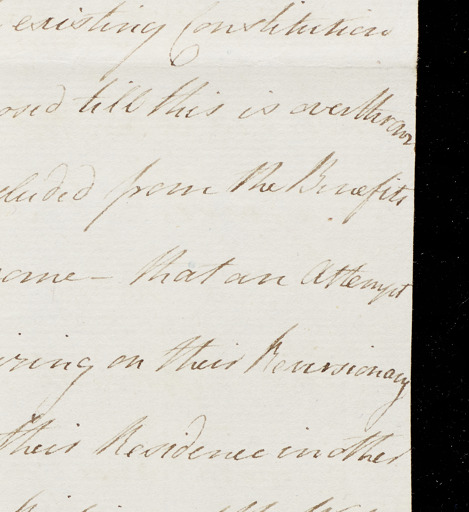 existing Constitution
osed till this is overthrown
cluded from the Benefits
ome - that an Attempt
iring on their Reversionary
their Residence in other